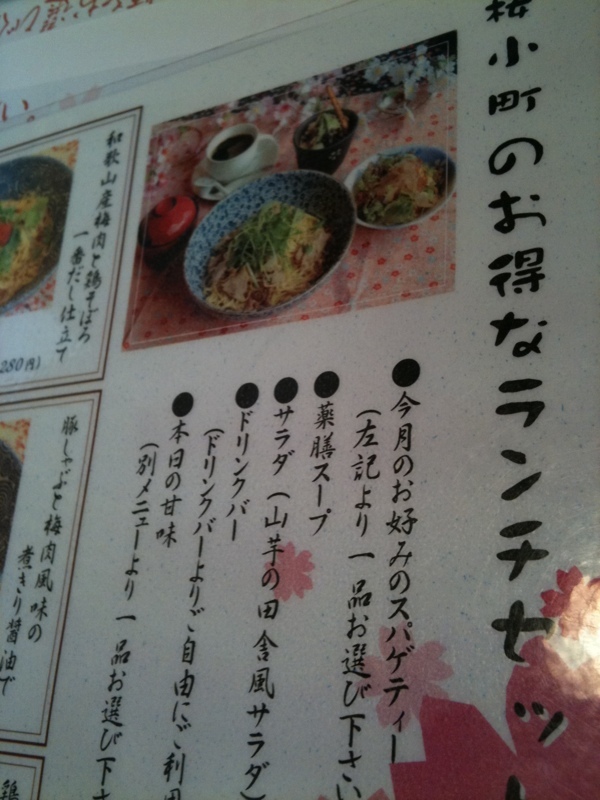 桜小町のお得なランチセット
●今月のお好みのスパゲティー
(左記より一品お選び下さい
●薬膳スープ
●サラダ(山芋の田舎風サラダ)
●ドリンクバー
(ドリンクバーよりご自由にご利用
●本日の甘味
(別メニューより一品お選び下さ
和歌山産梅肉と鶏そぼろ
一番だし仕立て
280円)
豚しゃぶと梅肉風味の
煮きり醤油で
鶏
い。